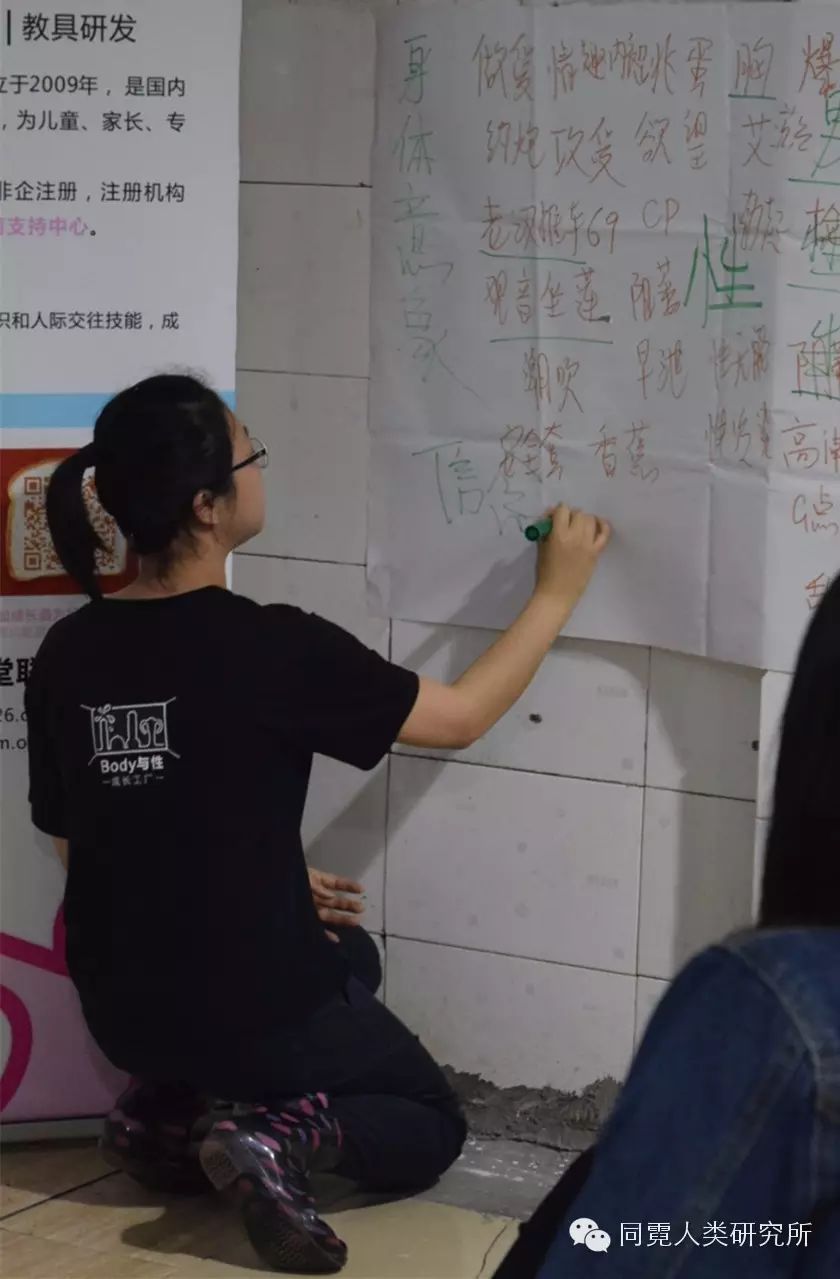 教具研发
立于2009年，是国内
，为儿童、家长、专
非企注册，注册机构
支持中心。
识和人际交往技能，成
身体意象
信任
性
做爱 情趣内裤 跳蛋 胸
约炮 攻受 欲望 艾滋
老汉推车 69 CP 勃起
观音坐莲 阳萎
潮吹 早泄 性无能
安全套 香蕉 高潮
G点
Body与性
成长工厂
同霓人类研究所